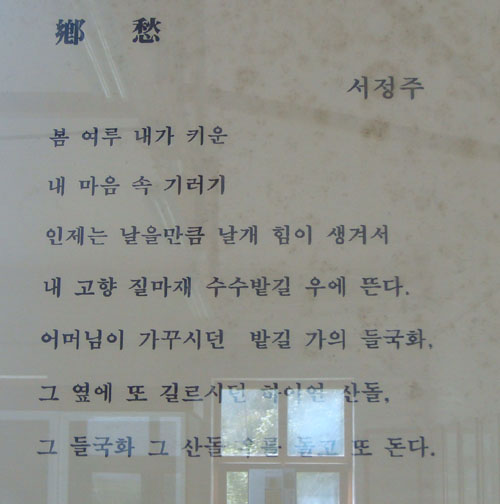 鄕 愁
서정주
봄 여루 내가 키운
내 마음 속 기러기
인제는 날을만큼 날개 힘이 생겨서
내 고향 질마재 수수밭길 우에 뜬다.
어머님이 가꾸시던 밭길 가의 들국화,
그 옆에 또 길르시던 하이연 산돌,
그 들국화 그 산돌 우를 돌고 또 돈다.